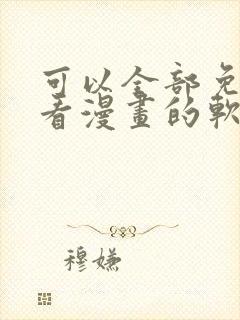 可以全部免
看漫畫的軟
穆嬿